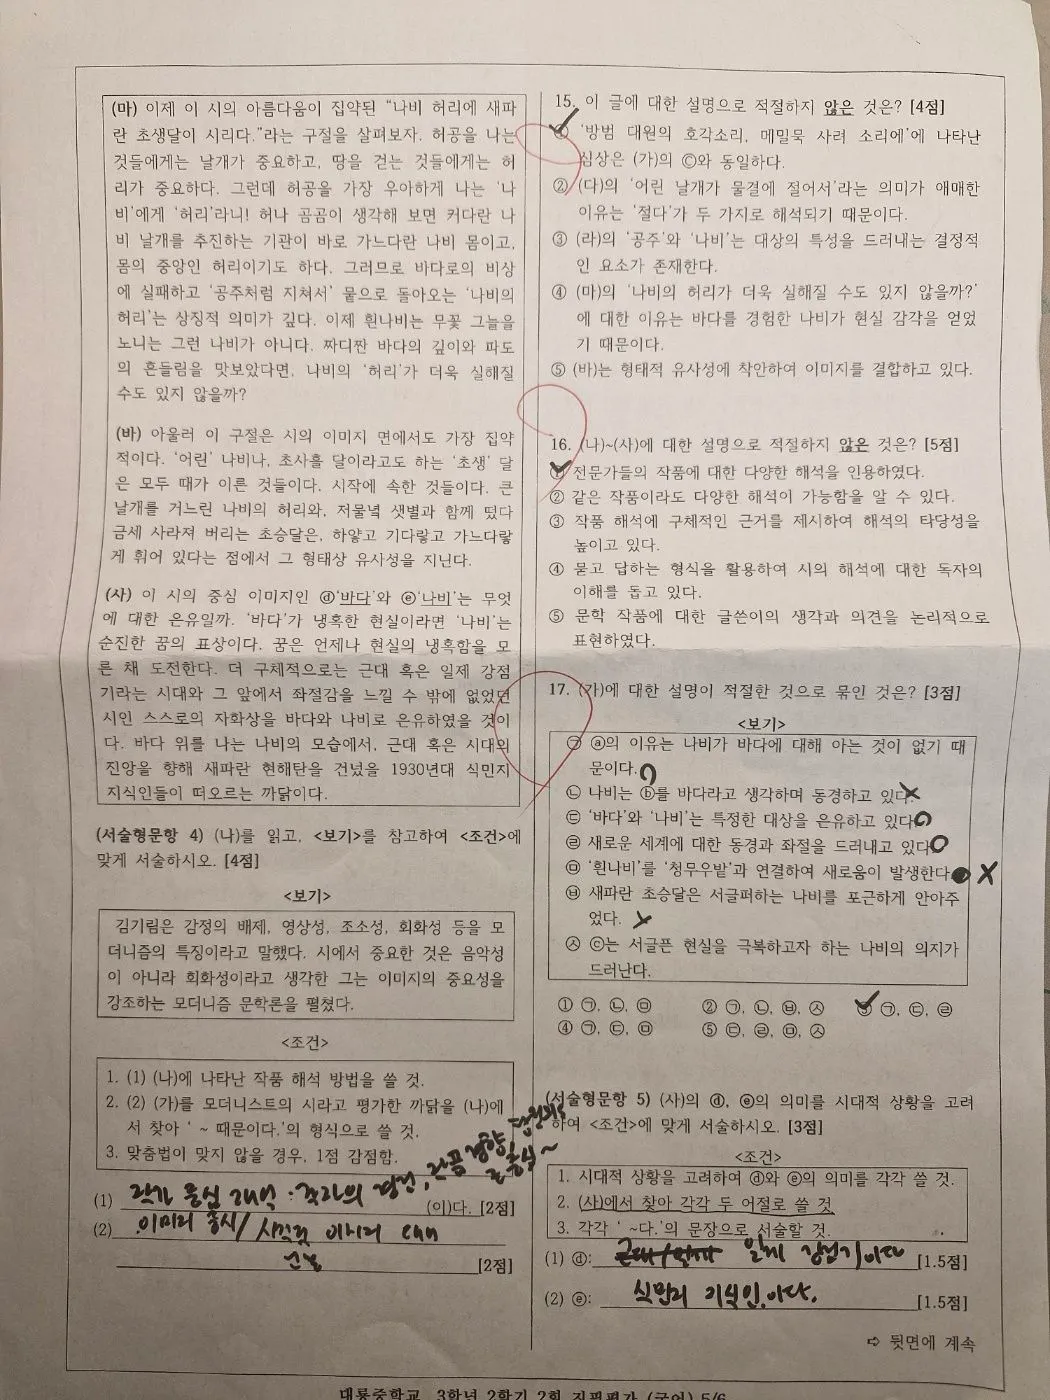 (마) 이제 이 시의 아름다움이 집약된 "나비 허리에 새파
란 초생달이 시리다."라는 구절을 살펴보자. 허공을 나는
것들에게는 날개가 중요하고, 땅을 걷는 것들에게는 허
리가 중요하다. 그런데 허공을 가장 우아하게 나는 '나
비'에게 '허리'라니! 허나 곰곰이 생각해 보면 커다란 나
비 날개를 추진하는 기관이 바로 가느다란 나비 몸이고,
몸의 중앙인 허리이기도 하다. 그러므로 바다로의 비상
에 실패하고 '공주처럼 지쳐서' 뭍으로 돌아오는 '나비의
허리'는 상징적 의미가 깊다. 이제 흰나비는 무꽃 그늘을
노니는 그런 나비가 아니다. 짜디짠 바다의 깊이와 파도
의 흔들림을 맛보았다면, 나비의 '허리'가 더욱 실해질
수도 있지 않을까?
(바) 아울러 이 구절은 시의 이미지 면에서도 가장 집약
적이다. '어린' 나비나, 초사흘 달이라고도 하는 '초생' 달
은 모두 때가 이른 것들이다. 시작에 속한 것들이다. 큰
날개를 거느린 나비의 허리와, 저물녘 샛별과 함께 떴다
금세 사라져 버리는 초승달은, 하얗고 기다랗고 가느다랗
게 휘어 있다는 점에서 그 형태상 유사성을 지닌다.
(사) 이 시의 중심 이미지인 ⓓ'바다'와 ⓔ'나비'는 무엇
에 대한 은유일까. '바다'가 냉혹한 현실이라면 '나비'는
순진한 꿈의 표상이다. 꿈은 언제나 현실의 냉혹함을 모
른 채 도전한다. 더 구체적으로는 근대 혹은 일제 강점
기라는 시대와 그 앞에서 좌절감을 느낄 수 밖에 없었던
시인 스스로의 자화상을 바다와 나비로 은유하였을 것이
다. 바다 위를 나는 나비의 모습에서, 근대 혹은 시대의
진앙을 향해 새파란 현해탄을 건넜을 1930년대 식민지
지식인들이 떠오르는 까닭이다.
(서술형문항 4) (나)를 읽고, <보기>를 참고하여 <조건>에
맞게 서술하시오. [4점]
<보기>
김기림은 감정의 배제, 영상성, 조소성, 회화성 등을 모
더니즘의 특징이라고 말했다. 시에서 중요한 것은 음악성
이 아니라 회화성이라고 생각한 그는 이미지의 중요성을
강조하는 모더니즘 문학론을 펼쳤다.
<조건>
1. (1) (나)에 나타난 작품 해석 방법을 쓸 것.
2. (2) (가)를 모더니스트의 시라고 평가한 까닭을 (나)에
서 찾아 ' ~ 때문이다.'의 형식으로 쓸 것.
3. 맞춤법이 맞지 않을 경우, 1점 감점함.
(1) 작가 중심 (이)다. [2점]
(2) 이미지 중시/
[2점]
15. 이 글에 대한 설명으로 적절하지 않은 것은? [4점]
① '방범 대원의 호각소리, 메밀묵 사려 소리에'에 나타난
심상은 (가)의 ⓒ와 동일하다.
② (다)의 '어린 날개가 물결에 절어서'라는 의미가 애매한
이유는 '절다'가 두 가지로 해석되기 때문이다.
③ (라)의 '공주'와 '나비'는 대상의 특성을 드러내는 결정적
인 요소가 존재한다.
④ (마)의 '나비의 허리가 더욱 실해질 수도 있지 않을까?'
에 대한 이유는 바다를 경험한 나비가 현실 감각을 얻었
기 때문이다.
⑤ (바)는 형태적 유사성에 착안하여 이미지를 결합하고 있다.
16. (나)~(사)에 대한 설명으로 적절하지 않은 것은? [5점]
① 전문가들의 작품에 대한 다양한 해석을 인용하였다.
② 같은 작품이라도 다양한 해석이 가능함을 알 수 있다.
③ 작품 해석에 구체적인 근거를 제시하여 해석의 타당성을
높이고 있다.
④ 묻고 답하는 형식을 활용하여 시의 해석에 대한 독자의
이해를 돕고 있다.
⑤ 문학 작품에 대한 글쓴이의 생각과 의견을 논리적으로
표현하였다.
17. (가)에 대한 설명이 적절한 것으로 묶인 것은? [3점]
<보기>
㉠ ⓐ의 이유는 나비가 바다에 대해 아는 것이 없기 때
문이다.
㉡ 나비는 ⓑ를 바다라고 생각하며 동경하고 있다.
㉢ '바다'와 '나비'는 특정한 대상을 은유하고 있다
㉣ 새로운 세계에 대한 동경과 좌절을 드러내고 있다
㉤ '흰나비'를 '청무우밭'과 연결하여 새로움이 발생한다
㉥ 새파란 초승달은 서글퍼하는 나비를 포근하게 안아주
었다.
㉦ ⓒ는 서글픈 현실을 극복하고자 하는 나비의 의지가
드러난다.
① ㉠, ㉡, ㉤ ② ㉠, ㉡, ㉥, ㉦ ③ ㉠, ㉢, ㉣
④ ㉠, ㉢, ㉤ ⑤ ㉢, ㉣, ㉤, ㉦
(서술형문항 5) (사)의 ⓓ, ⓔ의 의미를 시대적 상황을 고려
하여 <조건>에 맞게 서술하시오. [3점]
<조건>
1. 시대적 상황을 고려하여 ⓓ와 ⓔ의 의미를 각각 쓸 것.
2. (사)에서 찾아 각각 두 어절로 쓸 것.
3. 각각 ' ~다.'의 문장으로 서술할 것.
(1) ⓓ: 일제 강점기이다 [1.5점]
(2) ⓔ: 식민지 지식인이다. [1.5점]
⇨ 뒷면에 계속
대룡중학교 3학년 2학기 2회 지필평가 (국어) 5/6